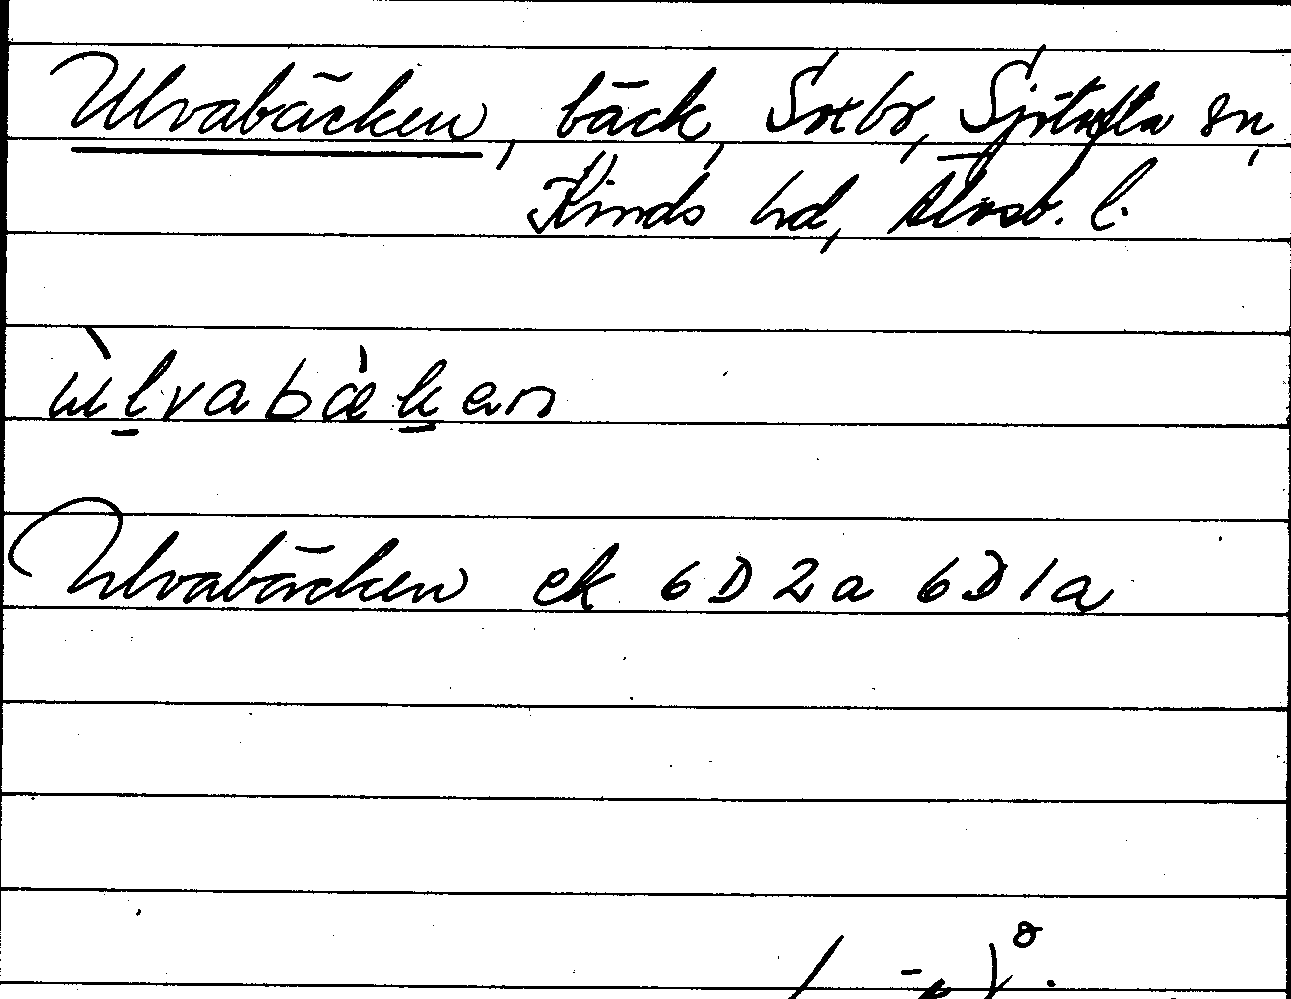 Ulvabäcken, bäck, Sotbo, Sjötofta sn,
Kinds hd, Älvsb. l.
ùlvabækan
Ulvabäcken ek 6D2a 6D1a